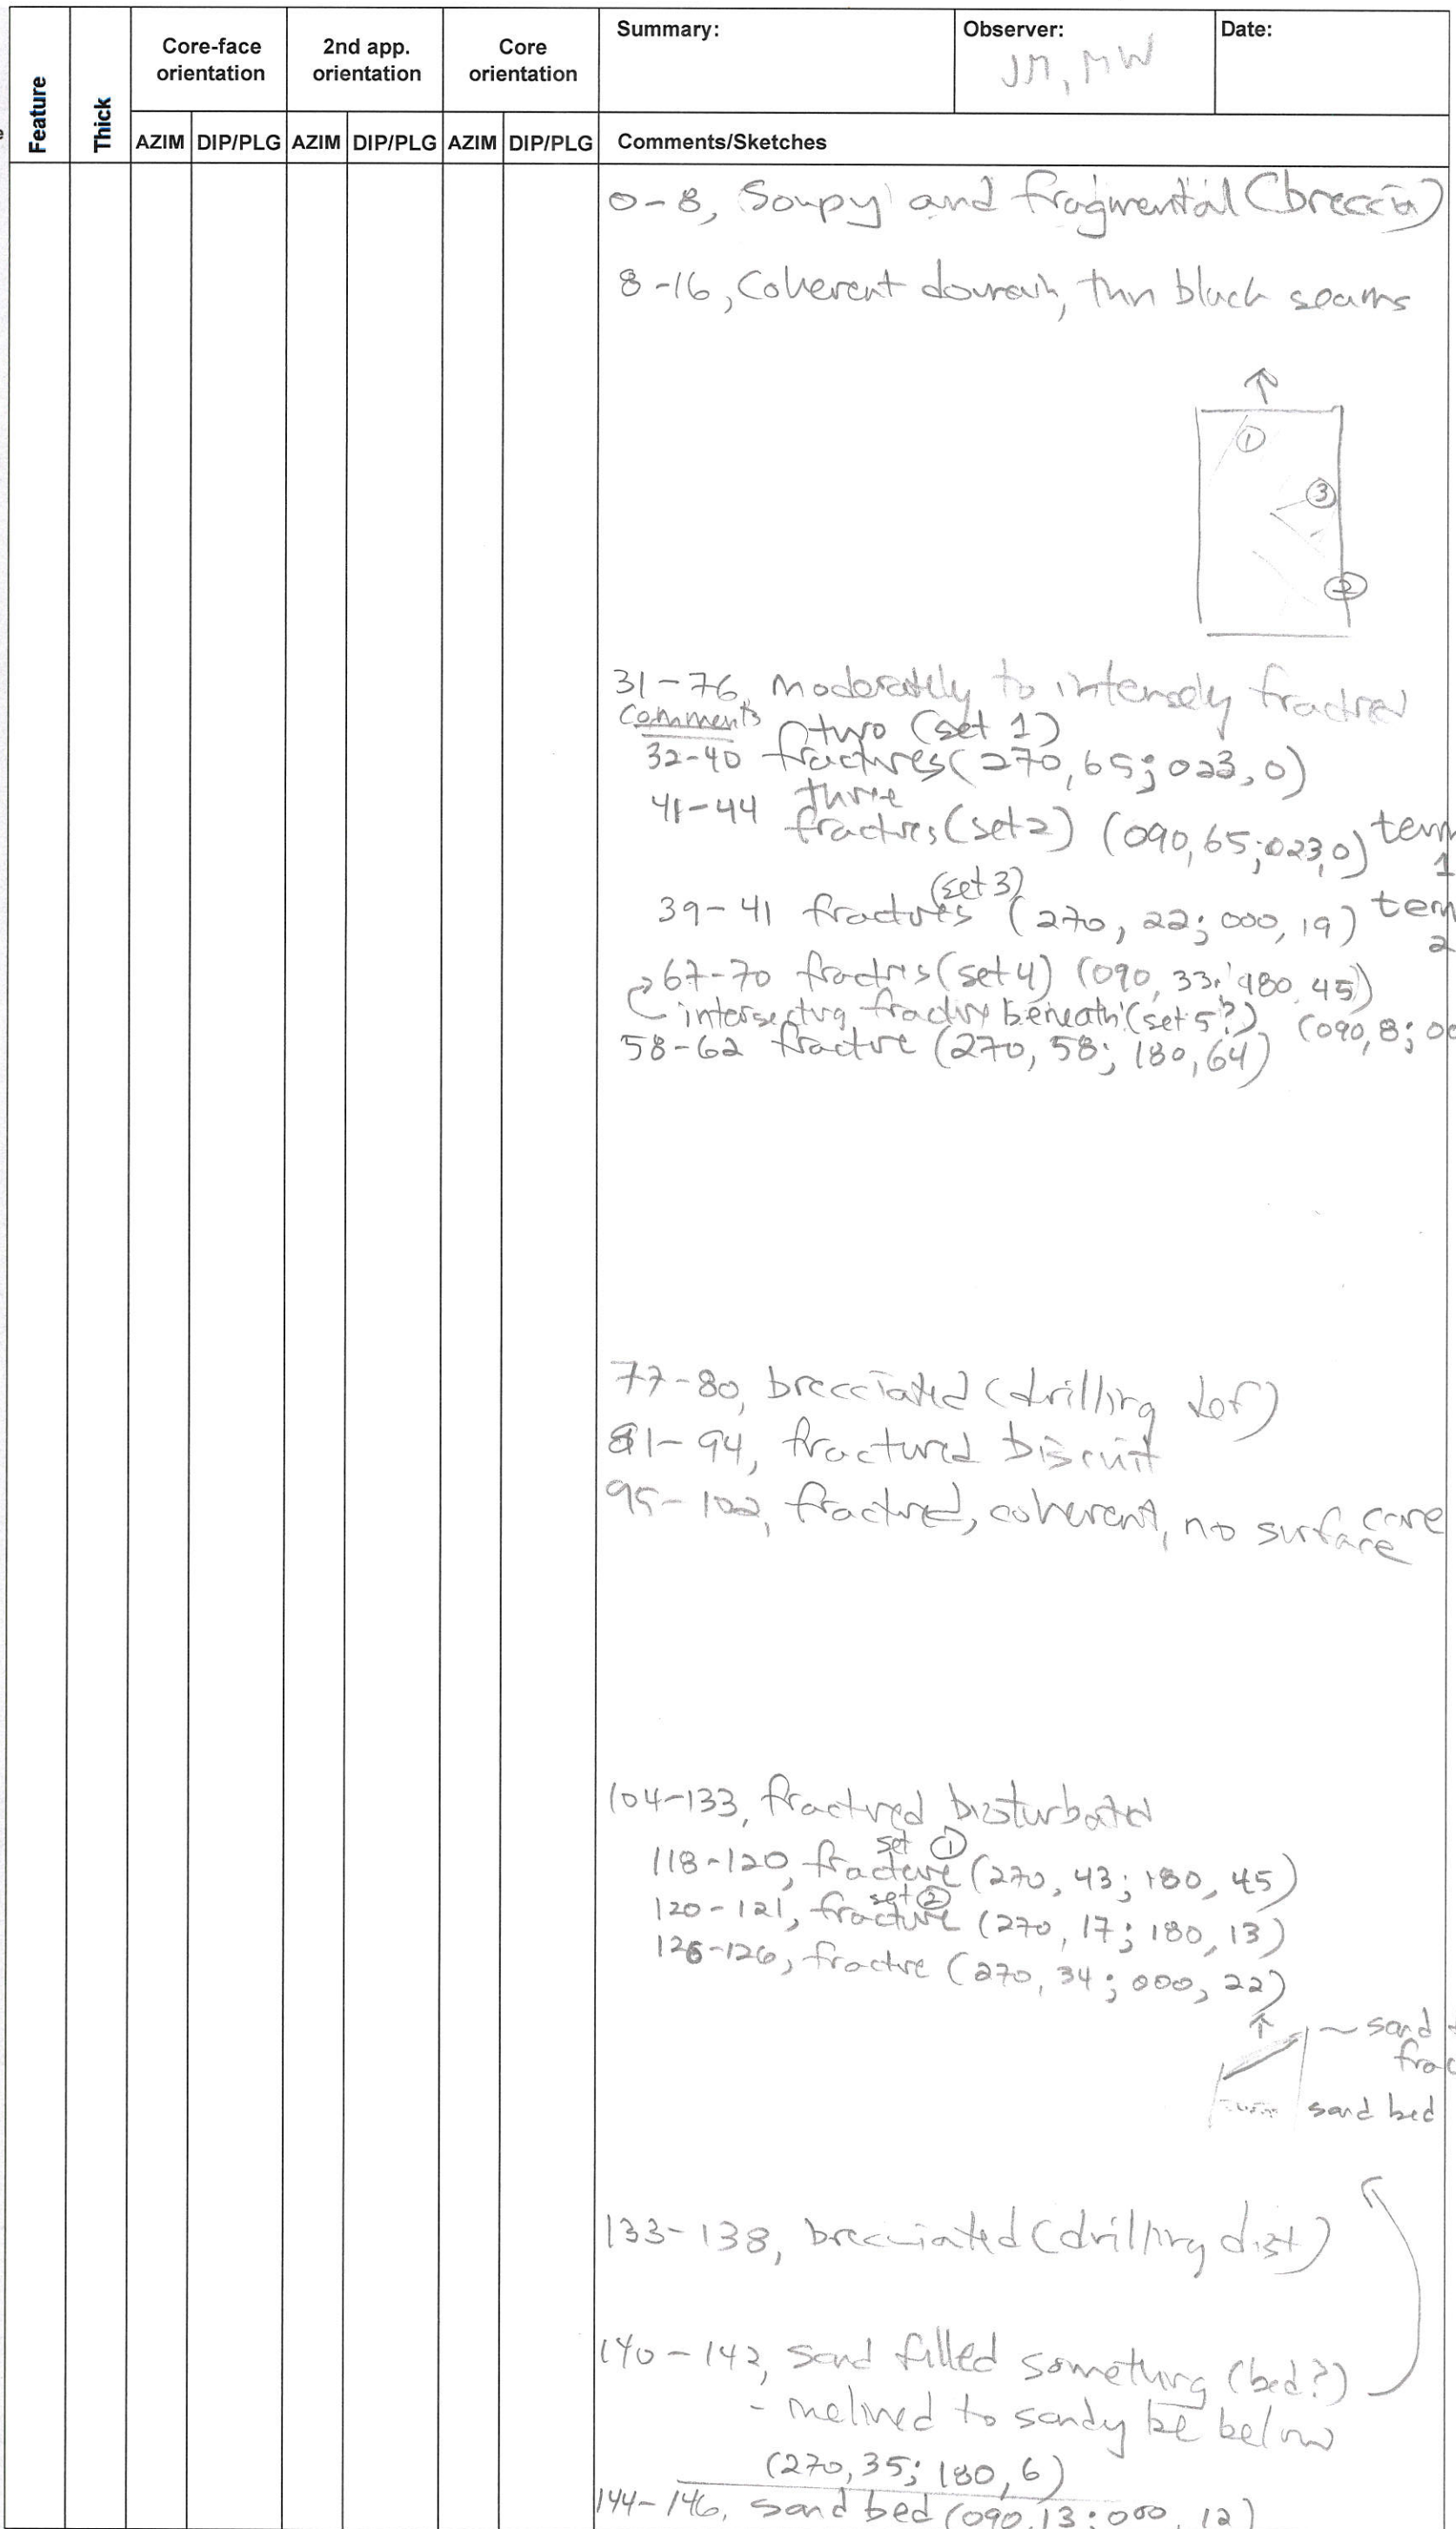 Feature
Thick
Core-face orientation
2nd app. orientation
Core orientation
Summary:
Observer:
JM, MW
Date:
AZIM DIP/PLG AZIM DIP/PLG AZIM DIP/PLG Comments/Sketches
0-8, Soupy and fragmental (breccia)
8-16, Coherent, thin black seams
↑
①
③
②
31-76, moderately to intensely fractured
comments two (set 1)
32-40 fractures (270, 65; 023, 0)
41-44 three fractres (set 2) (090, 65; 023, 0)
1
(set 3)
39-41 fractures (270, 22; 000, 19)
2
67-70 fractrs (set 4) (090, 33; 180, 45)
intersecting fracture beneath (set 5?) (090, 8;
58-62 fracture (270, 58; 180, 64)
77-80, brecciated (drilling def)
81-94, fractured biscuit
95-102, fractured, coherent, no surface core
104-133, fractured bioturbated
set ①
118-120, fracture (270, 43; 180, 45)
set ②
120-121, fracture (270, 17; 180, 13)
126-126, fractre (270, 34; 000, 22)
↑
sand
sand bed
133-138, brecciated (drilling dist)
140-142, sand filled something (bed?)
- inclined to sandy be below
(270, 35; 180, 6)
144-146, sand bed (090, 13; 000, 12)